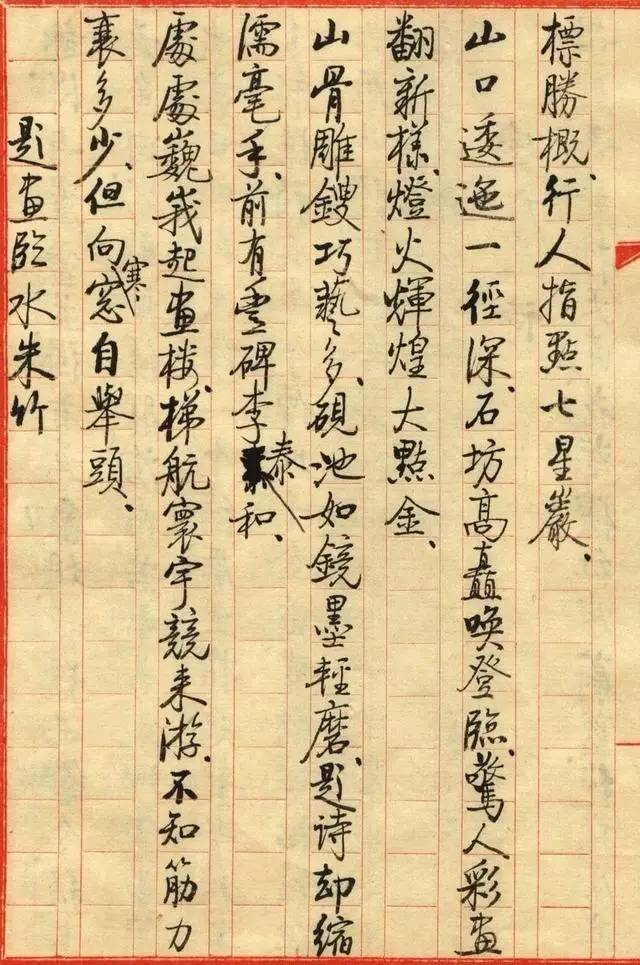 標勝概、行人指點七星巖、
山口逶迤一徑深、石坊高矗喚登臨、驚人彩畫
翻新樣、燈火輝煌大點金、
山骨雕鎪巧藝多、硯池如鏡墨輕磨、題诗却縮
濡毫手、前有豊碑李泰和、
處處巍峩起畫楼、梯航寰宇競来游、不知筋力
衰多少、但向寒窓自舉頭、
題畫臨水朱竹